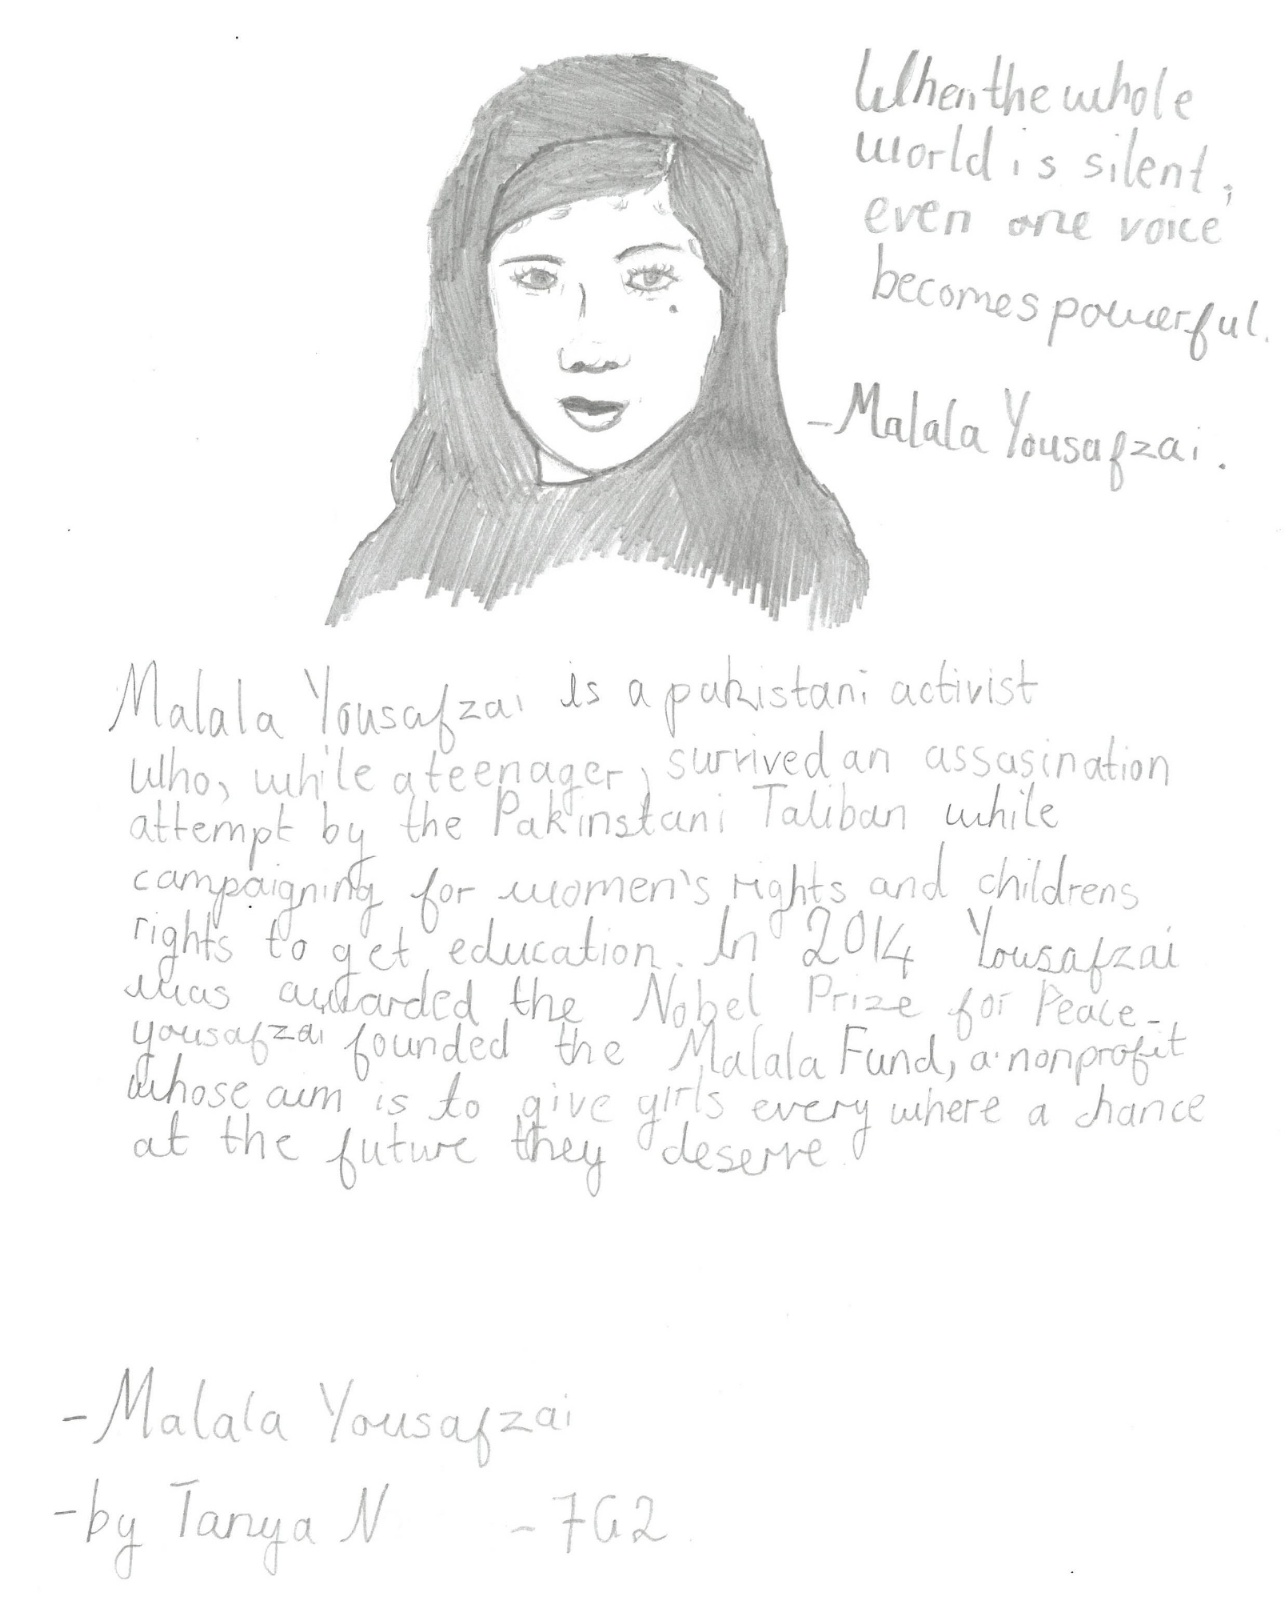 When the whole
world is silent,
even one voice
becomes powerful.
-Malala Yousafzai.
Malala Yousafzai is a pakistani activist
who, while a teenager, survived an assasination
attempt by the Pakinstani Taliban while
campaigning for women's rights and childrens
rights to get education. In 2014 Yousafzai
was awarded the Nobel Prize for Peace-
yousafzai founded the Malala Fund, a nonprofit
whose aim is to give girls every where a chance
at the future they deserve
-Malala Yousafzai
-by Tanya N -7G2